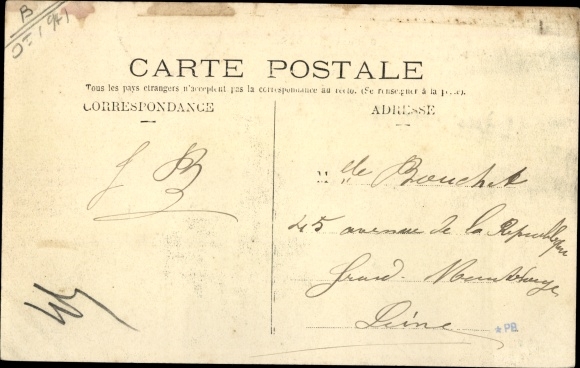 B
CARTE POSTALE
Tous les pays étrangers n'acceptent pas la correspondance au recto. (Se renseigner à la poste).
CORRESPONDANCE
ADRESSE
J B
Mlle Bouchet
45 avenue de la République
Grand-Montrouge
Seine
*PB